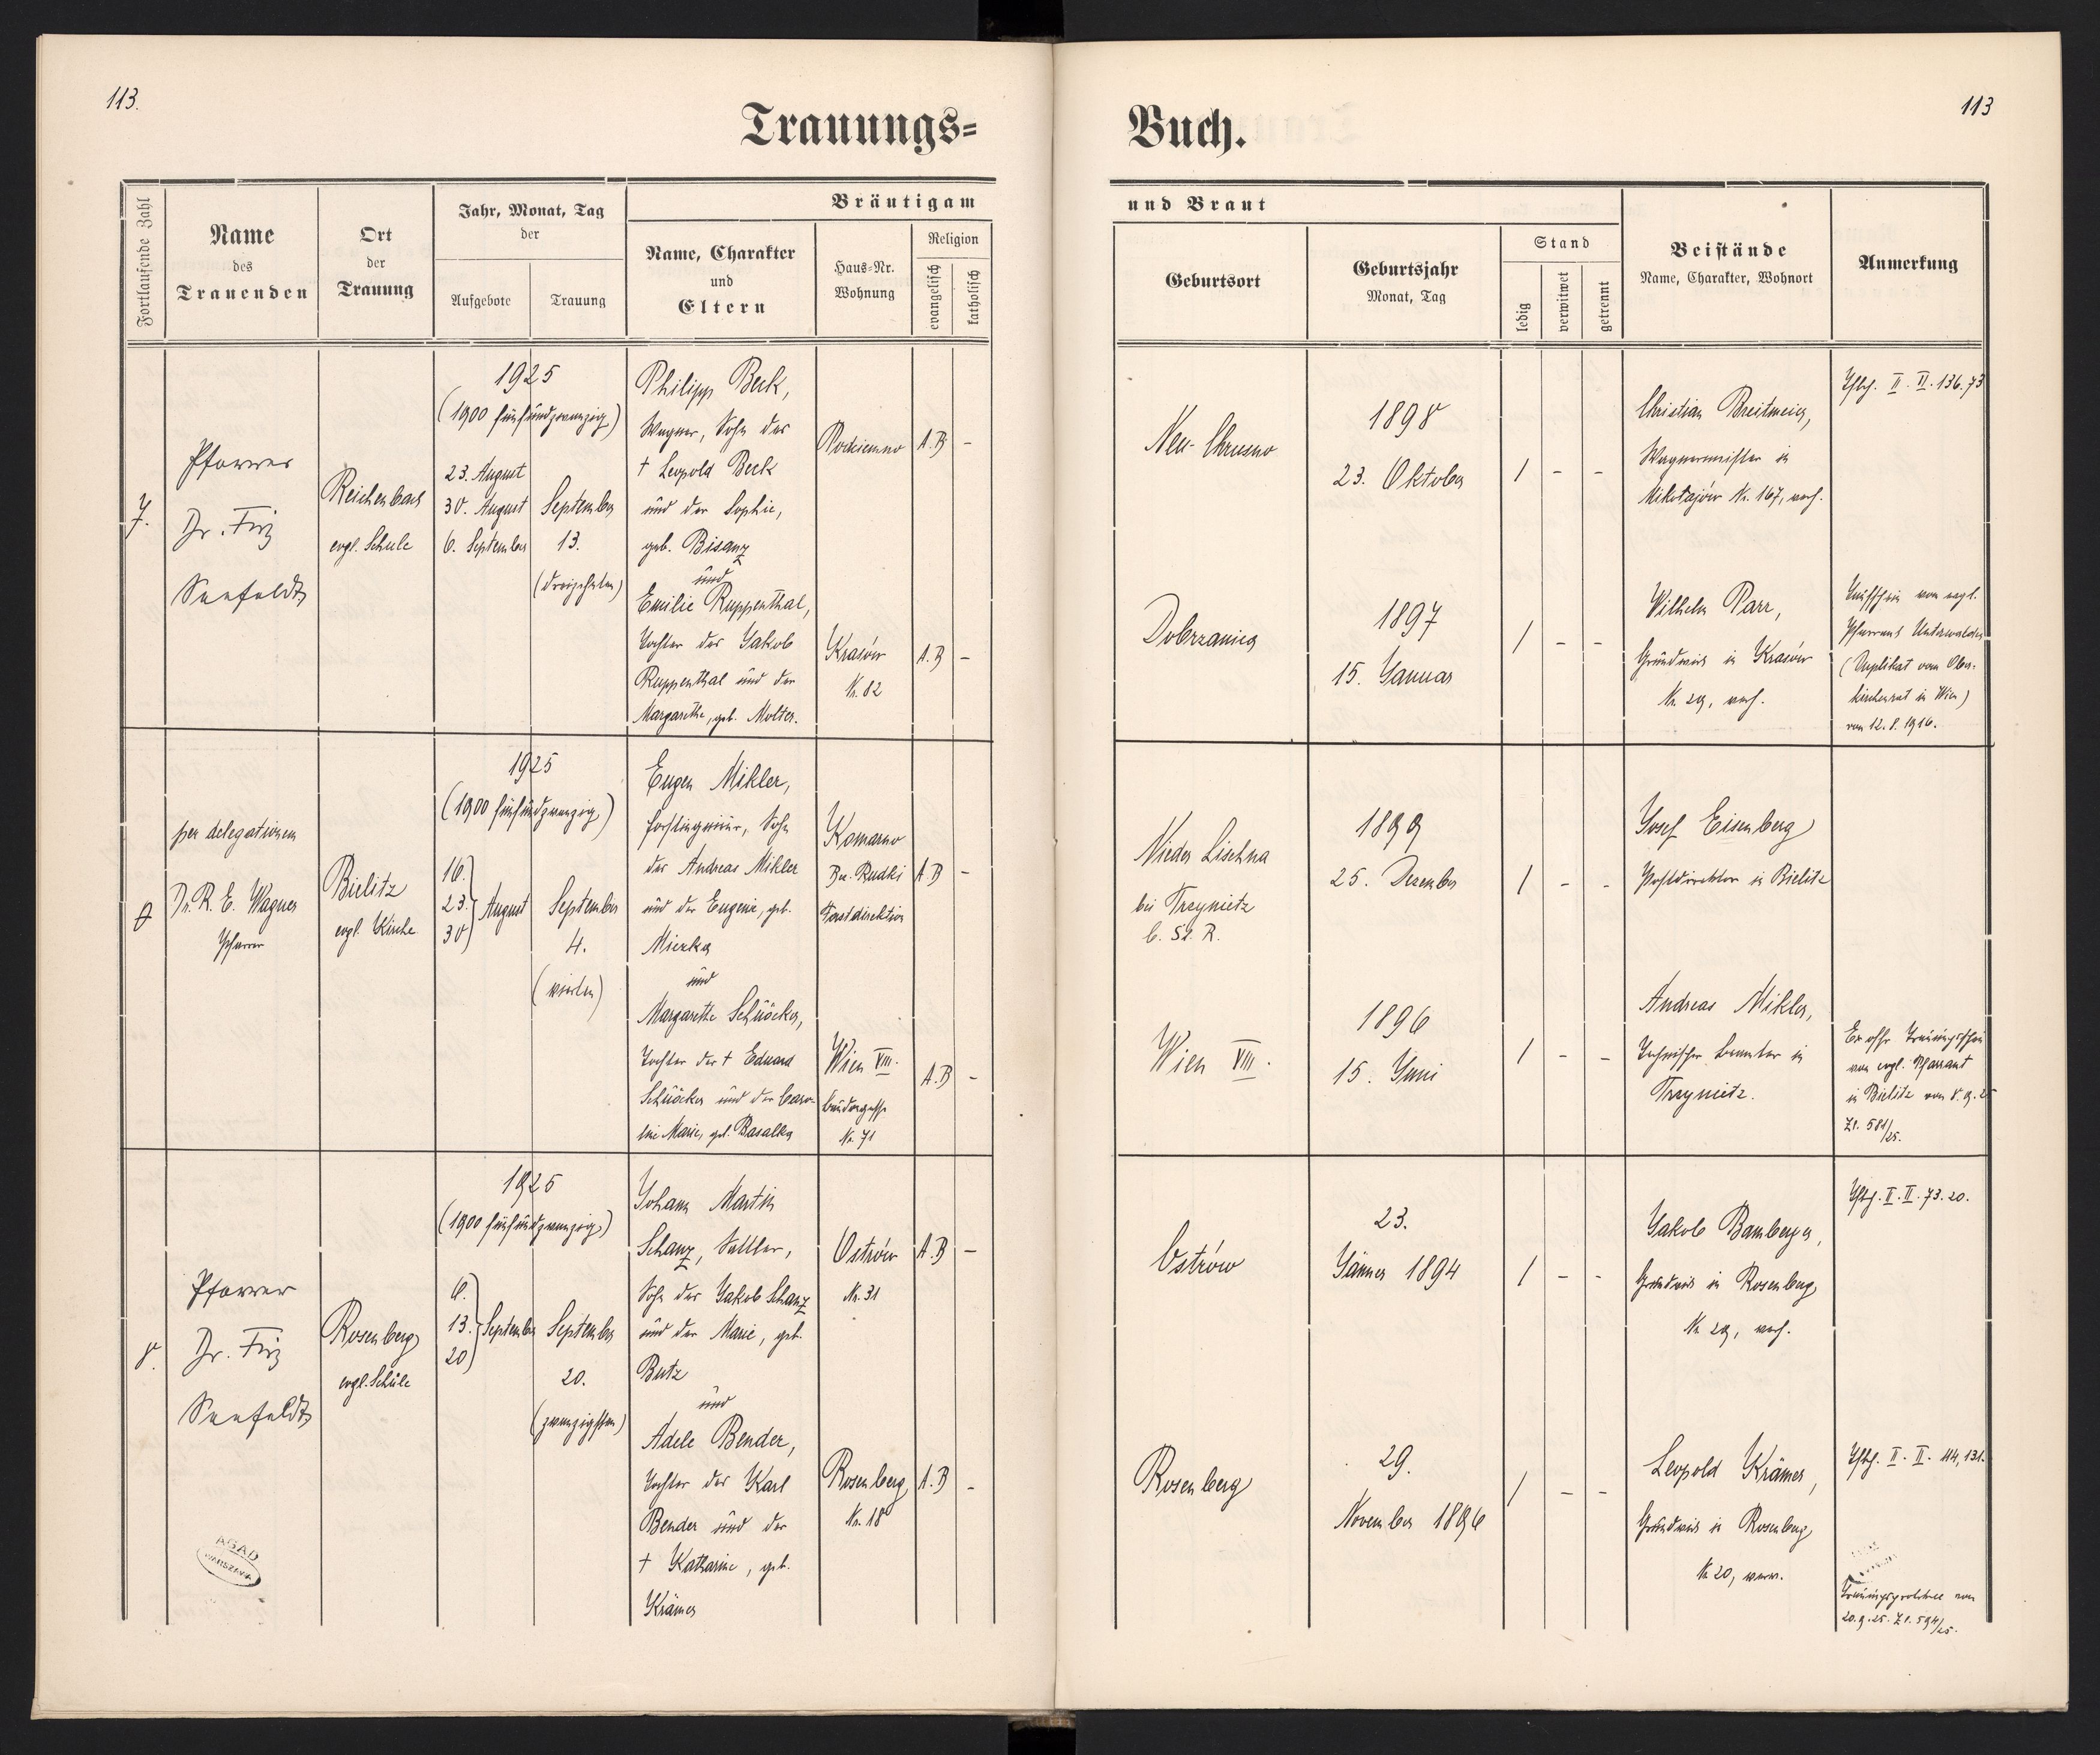 113.
113
Trauungs=
Buch.
Fortlaufende Zahl
Name
des
Trauenden
Ort
der
Trauung
Jahr, Monat, Tag
der
Aufgebote
Trauung
Bräutigam
Name, Charakter
und
Eltern
Haus=Nr.
Wohnung
Religion
evangelisch
katholisch
und Braut
Geburtsort
Geburtsjahr
Monat, Tag
Stand
ledig
verwitwet
getrennt
Beistände
Name, Charakter, Wohnort
Anmerkung
7.
Pfarrer
Dr. Friz
Seefeldt
Reichenbach
evgl. Schule
1925
(1900 fünfundzwanzig)
23. August
30. August
6. September
September
13.
(dreizehnten)
Philipp Beck,
Wagner, Sohn des
† Leopold Beck
und der Sophie,
geb. Bisanz
und
Emilie Ruppenthal,
Tochter des Jakob
Ruppenthal und der
Margarethe, geb. Molter.
A.B -
Krasów
Nr. 82
A.B -
Neu-Chrusno
1898
23. Oktober
/ - -
Christian Breitmeier,
Wagnermeister in
Mikołajów Nr. 167, verh.
II. II. 136. 73
Dobrzanica
1897
15. Januar
/ - -
Wilhelm Parr,
Grundwirt in Krasów
Nr. 29, verh.
Taufschein vom evgl.
Pfarramt Unterwalden
(Duplikat vom Ober-
kirchenrat in Wien)
vom 12. 8. 1916.
per delegationem
Dr. R. E. Wagner
Pfarrer
Bielitz
evgl. Kirche
1925
(1900 fünfundzwanzig)
16.
23. August
30
September
4.
(vierten)
Eugen Mikler,
Forstingenieur, Sohn
des Andreas Mikler
und der Eugenie, geb.
Mierka
und
Margarethe Schüöcker,
Tochter des † Eduard
Schüöcker und der Caro-
line Marie, geb. Basalka
Komarno
Bez. Rudki
Forstdirektion
A.B -
Wien VIII.
Nr. 71
A.B -
Nieder Lischna
bei Trzynietz
1899
25. Dezember
/ - -
Josef Eisenberg
Postdirektor in Bielitz
Wien VIII.
1896
15. Juni
/ - -
Andreas Mikler,
Technischer Beamter in
Trzynietz.
Er. offo Trauungsschein
vom evgl. Pfarramt
in Bielitz vom 8. 9. 25
Zl. 581/25.
8.
Pfarrer
Dr. Friz
Seefeldt
Rosenberg
evgl. Schule
1925
(1900 fünfundzwanzig)
6.
13. September
20
September
20.
(zwanzigsten)
Johann Martin
Schanz, Sattler,
Sohn des Jakob Schanz
und der Marie, geb.
Butz
und
Adele Bender,
Tochter des Karl
Bender und der
† Katharine, geb.
Krämer
Ostrów
Nr. 31
A.B -
Rosenberg
Nr. 18
A.B -
Ostrów
23.
Jänner 1894
/ - -
Jakob Bamberger,
Grundwirt in Rosenberg
Nr. 29, verh.
II. II. 73. 20.
Rosenberg
29.
November 1896
/ - -
Leopold Krämer,
Grundwirt in Rosenberg
Nr. 20, verw.
II. II. 114, 131.
Trauungsprotokoll vom
20. 9. 25. Zl. 594/25.
AGAD
WARSZAWA